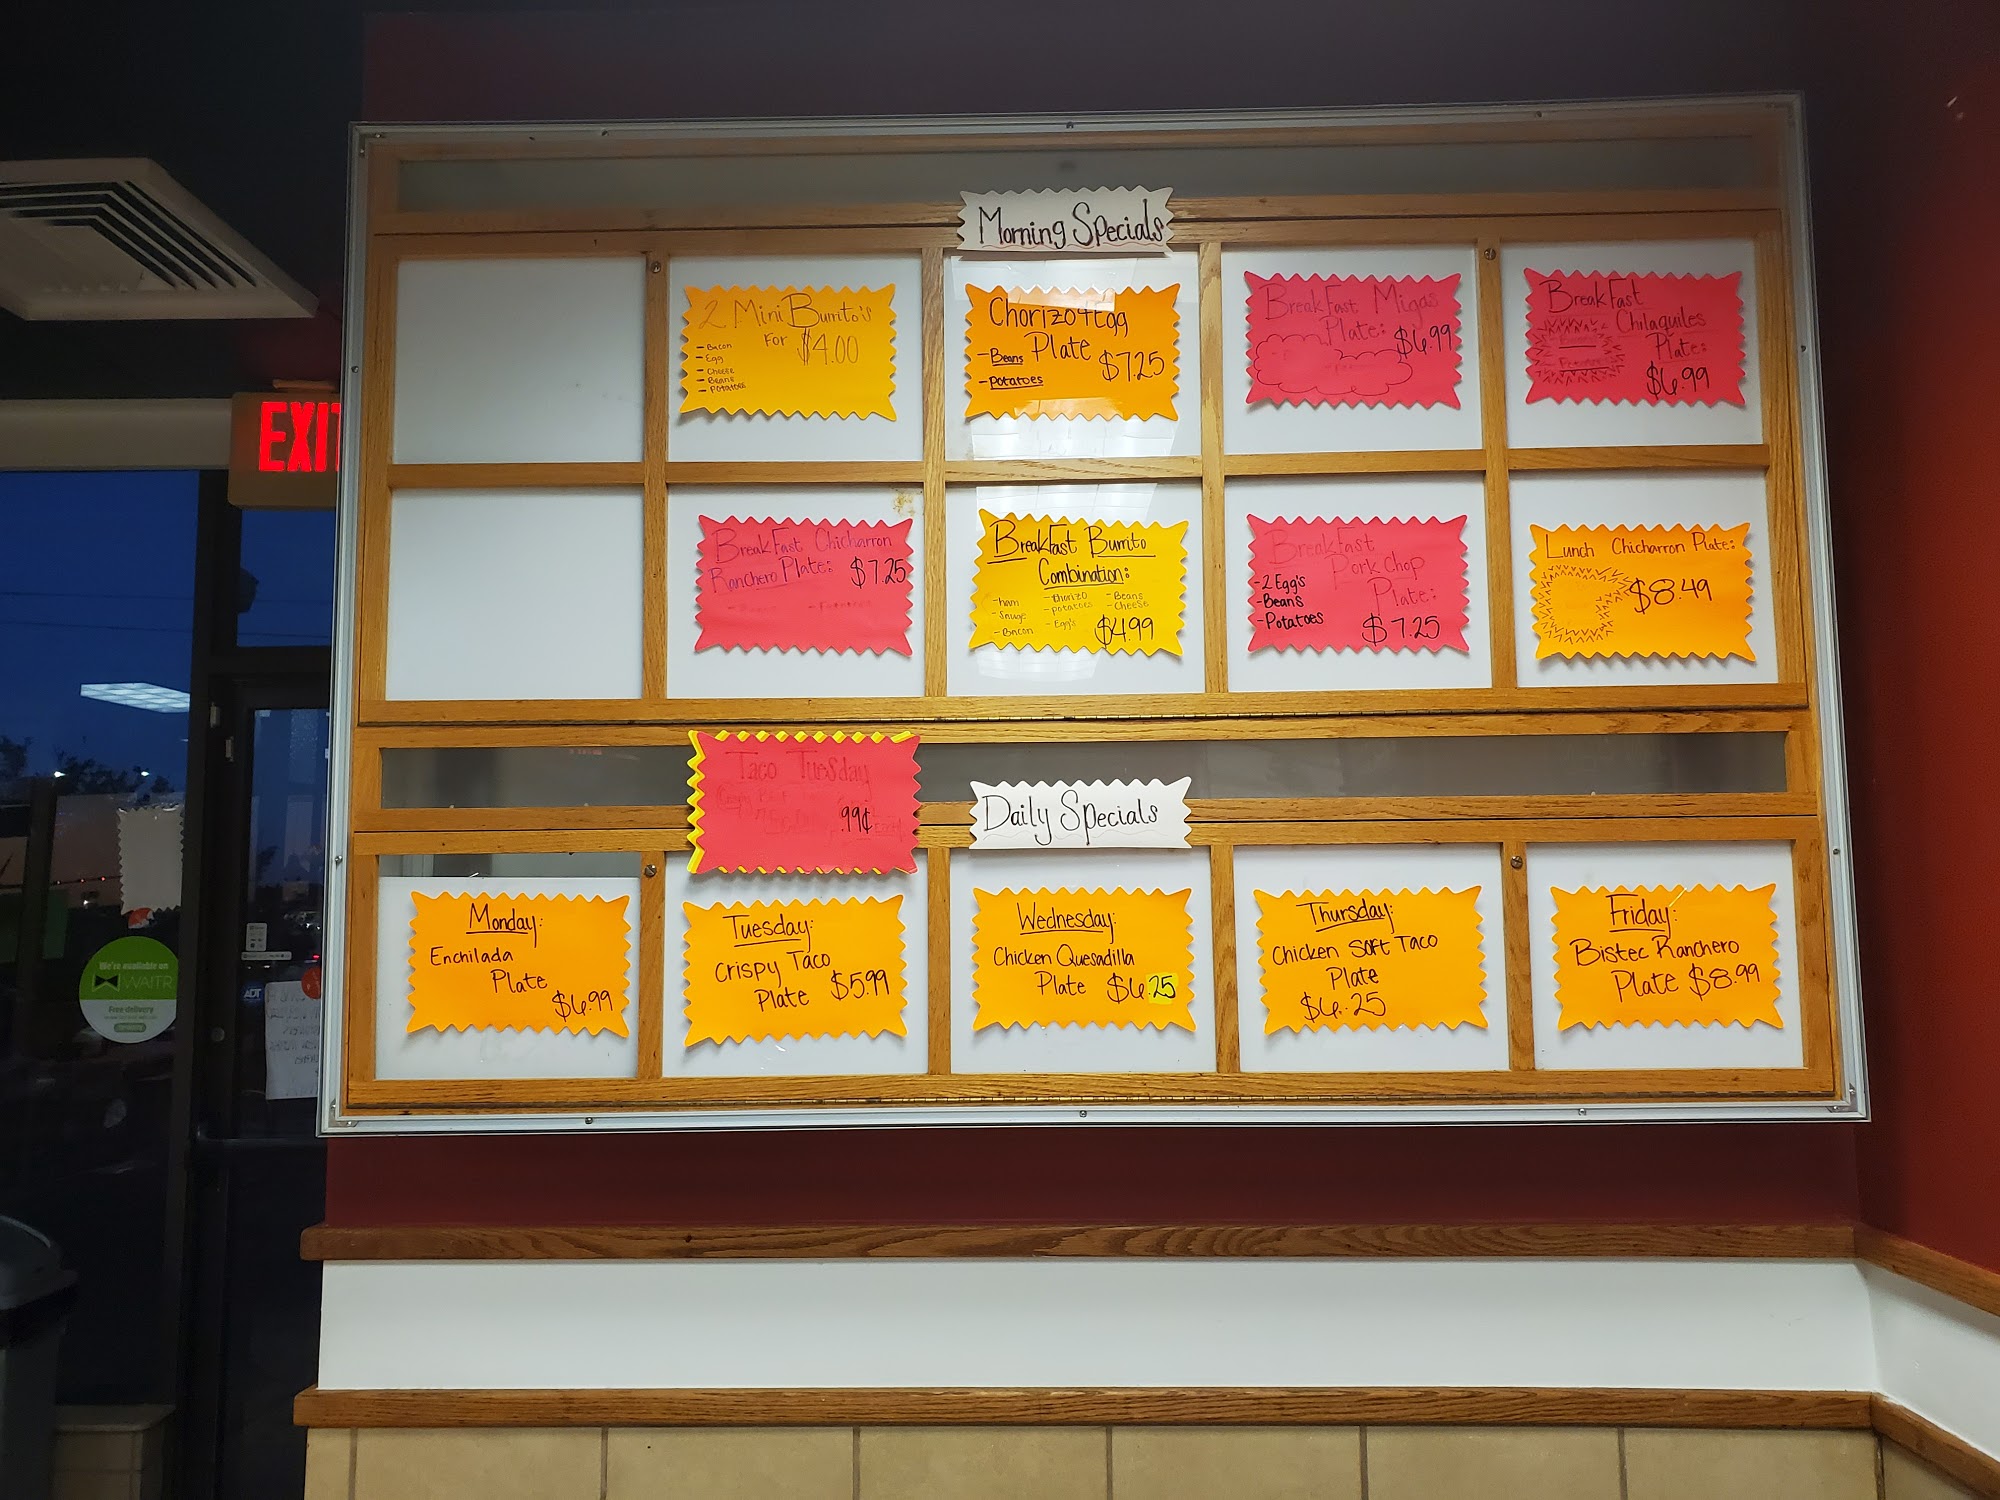 Morning Specials
2 Mini Burrito's
For $4.00
- Bacon
- Egg
- Cheese
- Beans
- Potatoes
Chorizo+Egg
Plate
- Beans
- Potatoes
$7.25
BreakFast Migas
Plate: $6.99
BreakFast
Chilaquiles
Plate:
$6.99
BreakFast Chicharron
Ranchero Plate: $7.25
BreakFast Burrito
Combination:
- ham - chorizo - Beans
- potatoes - Cheese
- Bacon - Egg's
$4.99
BreakFast
Pork Chop
Plate:
- 2 Egg's
- Beans
- Potatoes
$7.25
Lunch Chicharron Plate:
$8.49
Taco Tuesday
.99¢
Daily Specials
Monday:
Enchilada
Plate
$6.99
Tuesday:
Crispy Taco
Plate $5.99
Wednesday:
Chicken Quesadilla
Plate $6.25
Thursday:
Chicken Soft Taco
Plate
$6.25
Friday:
Bistec Ranchero
Plate $8.99
EXIT
We're available on
WAITR
Free delivery
ADT